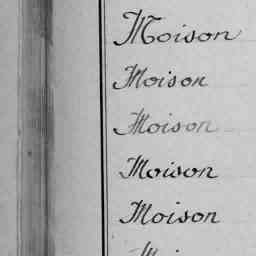 Moison
Moison
Moison
Moison
Moison